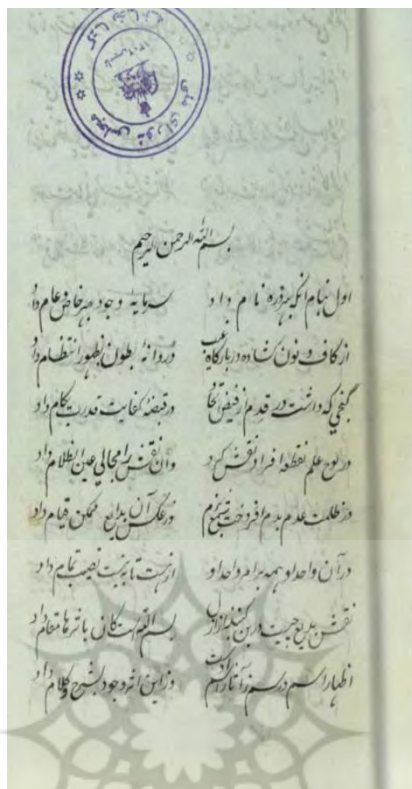 کتابخانه مجلس شورای ملی
بسم الله الرحمن الرحیم
اول بنام آنکه بهر ذره نام داد سرمایه وجود بهر خاص و عام داد
از کاف و نون گشاده در بارگاه غیب وز بطون بظهور انتظام داد
گنجی که داشت در قدم از فیض در قبضه کفایت قدرت بکام داد
در لوح علم نقطه افراد نقش کرد وان نقش را مجالی عین الظلام داد
در ظلمت عدم بدم افروخت وز عکس آن بدایع ممکن قیام داد
در آن واحد او همه را مر واحد او از هست تا به نیست نصیب تمام داد
نقش بدیع چیست درین از ازل بسم الله است کان با ثرها مقام داد
اظهار اسم در رسم ز آثار وز این اثر وجود بشرح و کلام داد